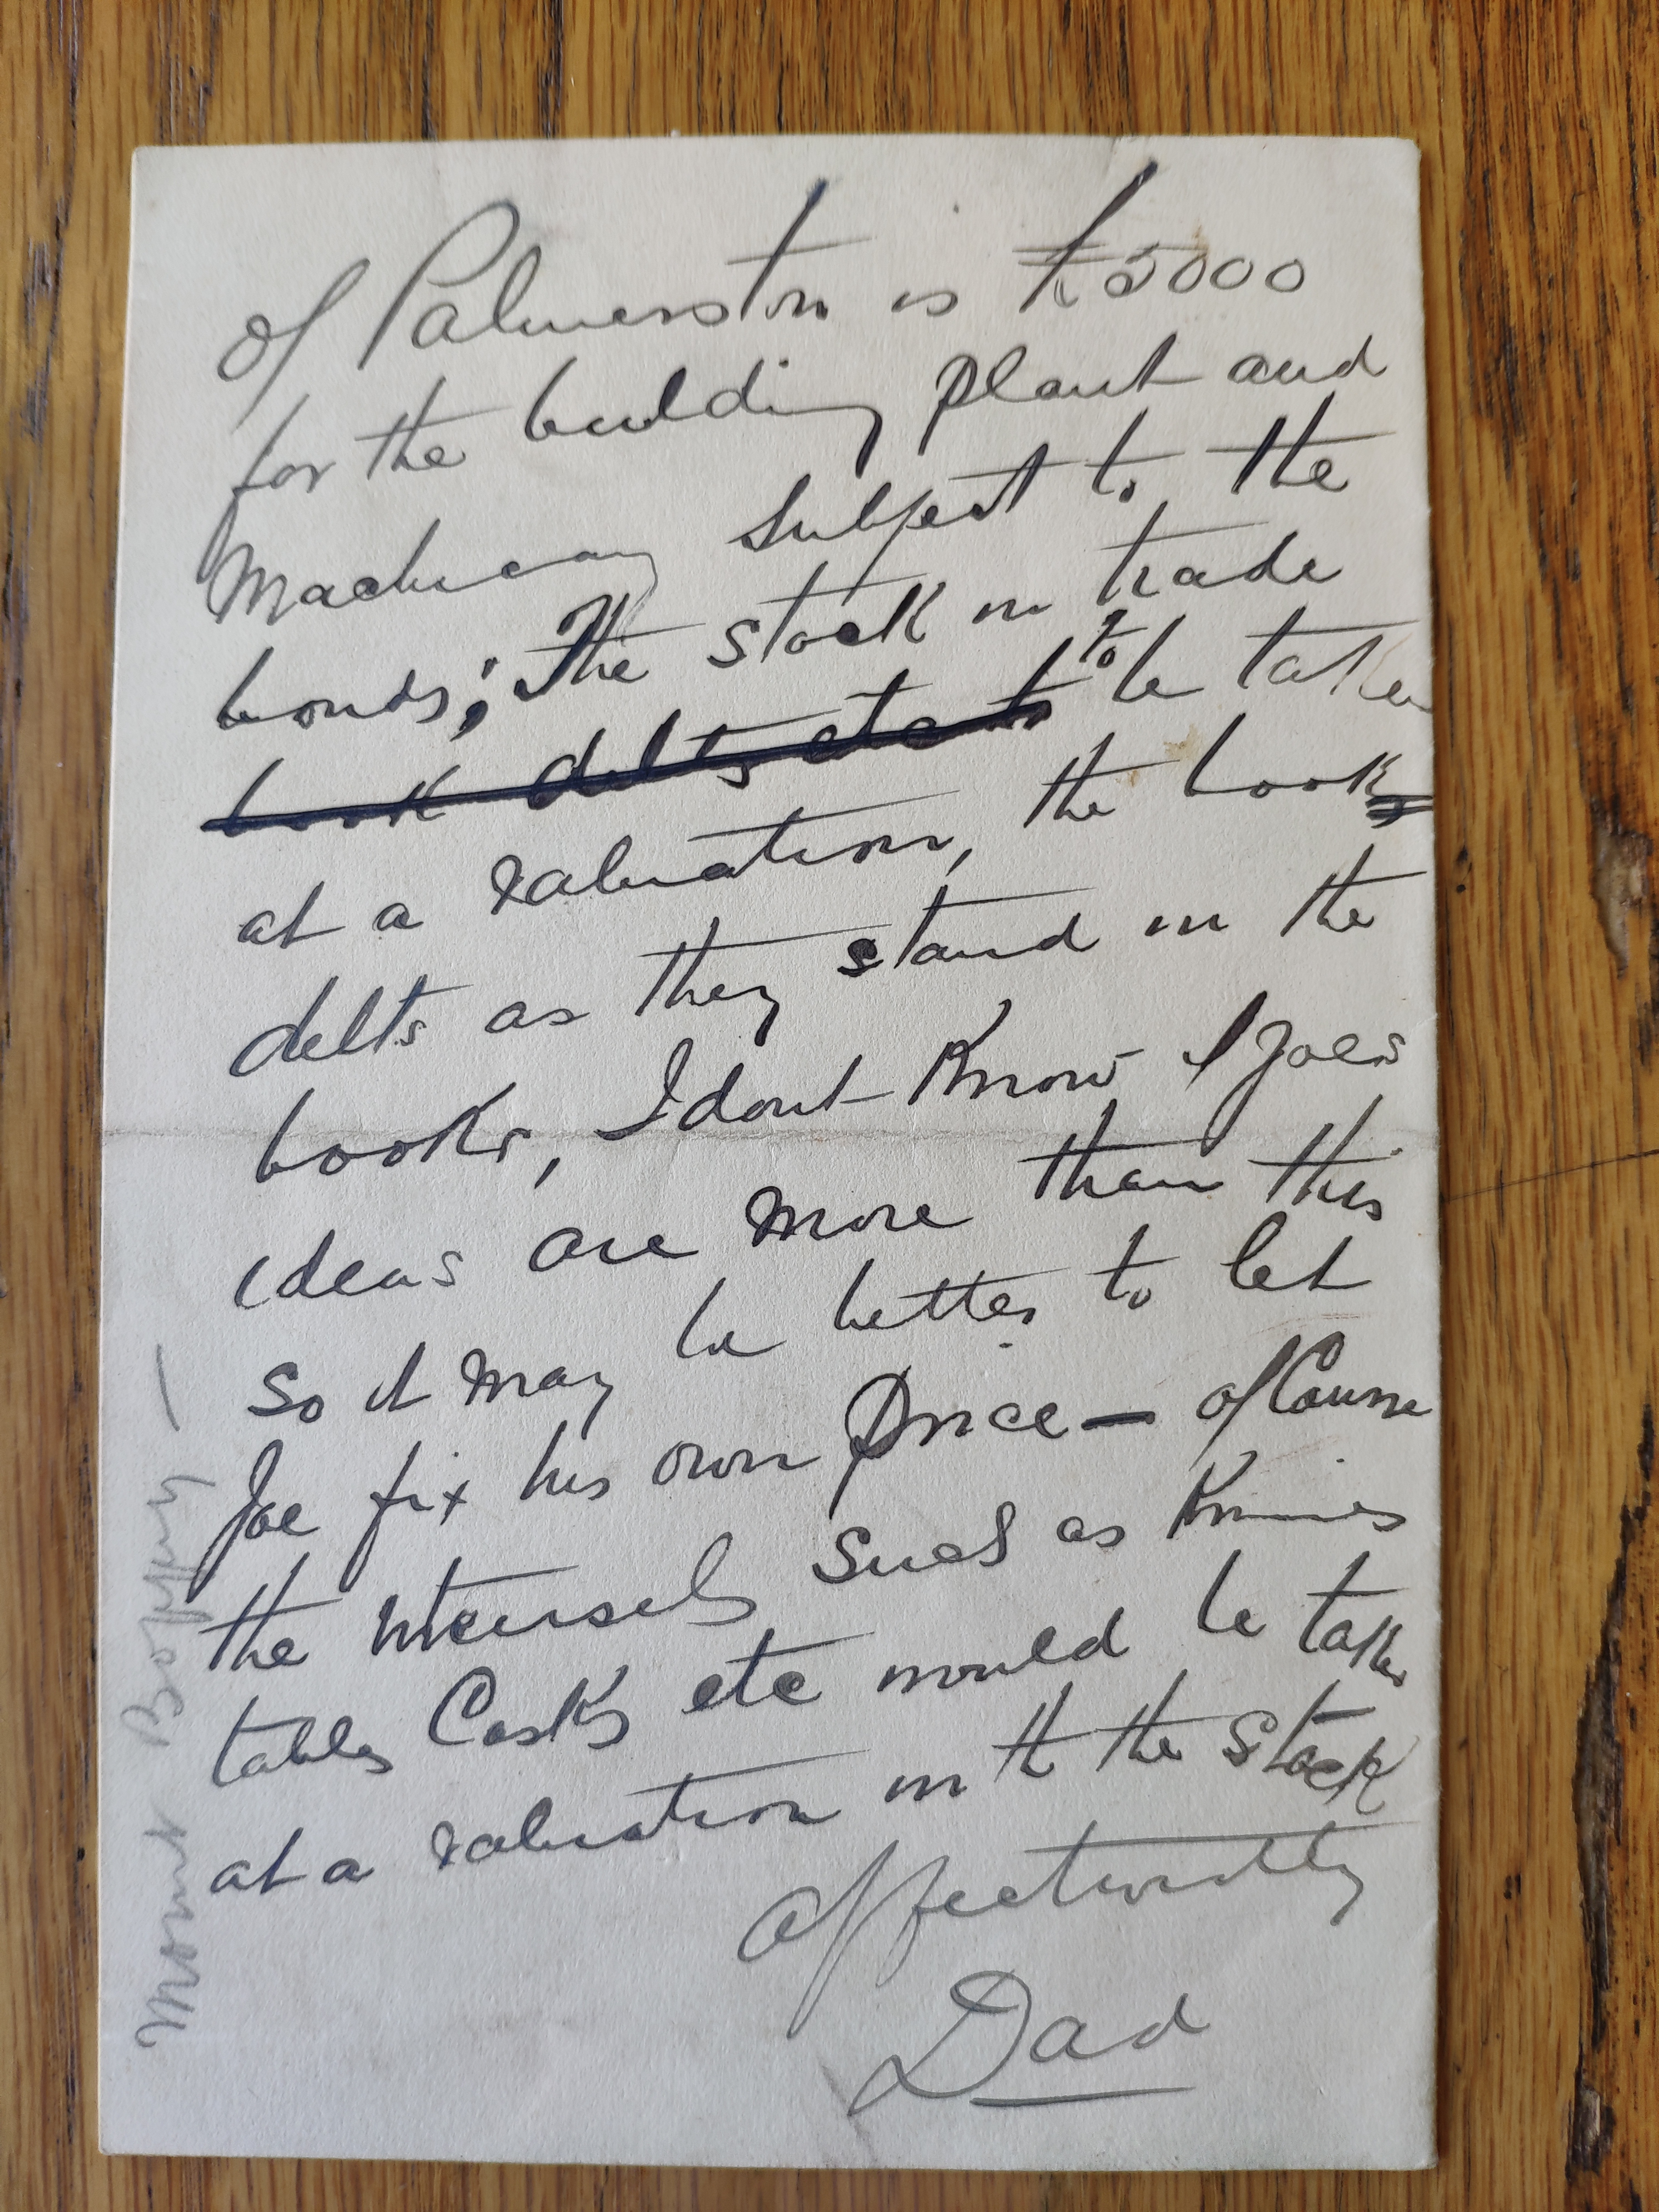 of Palmerston is £5000
for the building plant and
Machinery subject to the
bonds; The stock in trade
book debts etc to to be taken
at a valuation, the book
debts as they stand in the
books, I dont Know if Joes
ideas are more than this
so it may be better to let
Joe fix his own price — of Course
the utensels such as Knives
tables Casks etc would be taken
at a valuation with the stock
affectionately
Dad
Mount